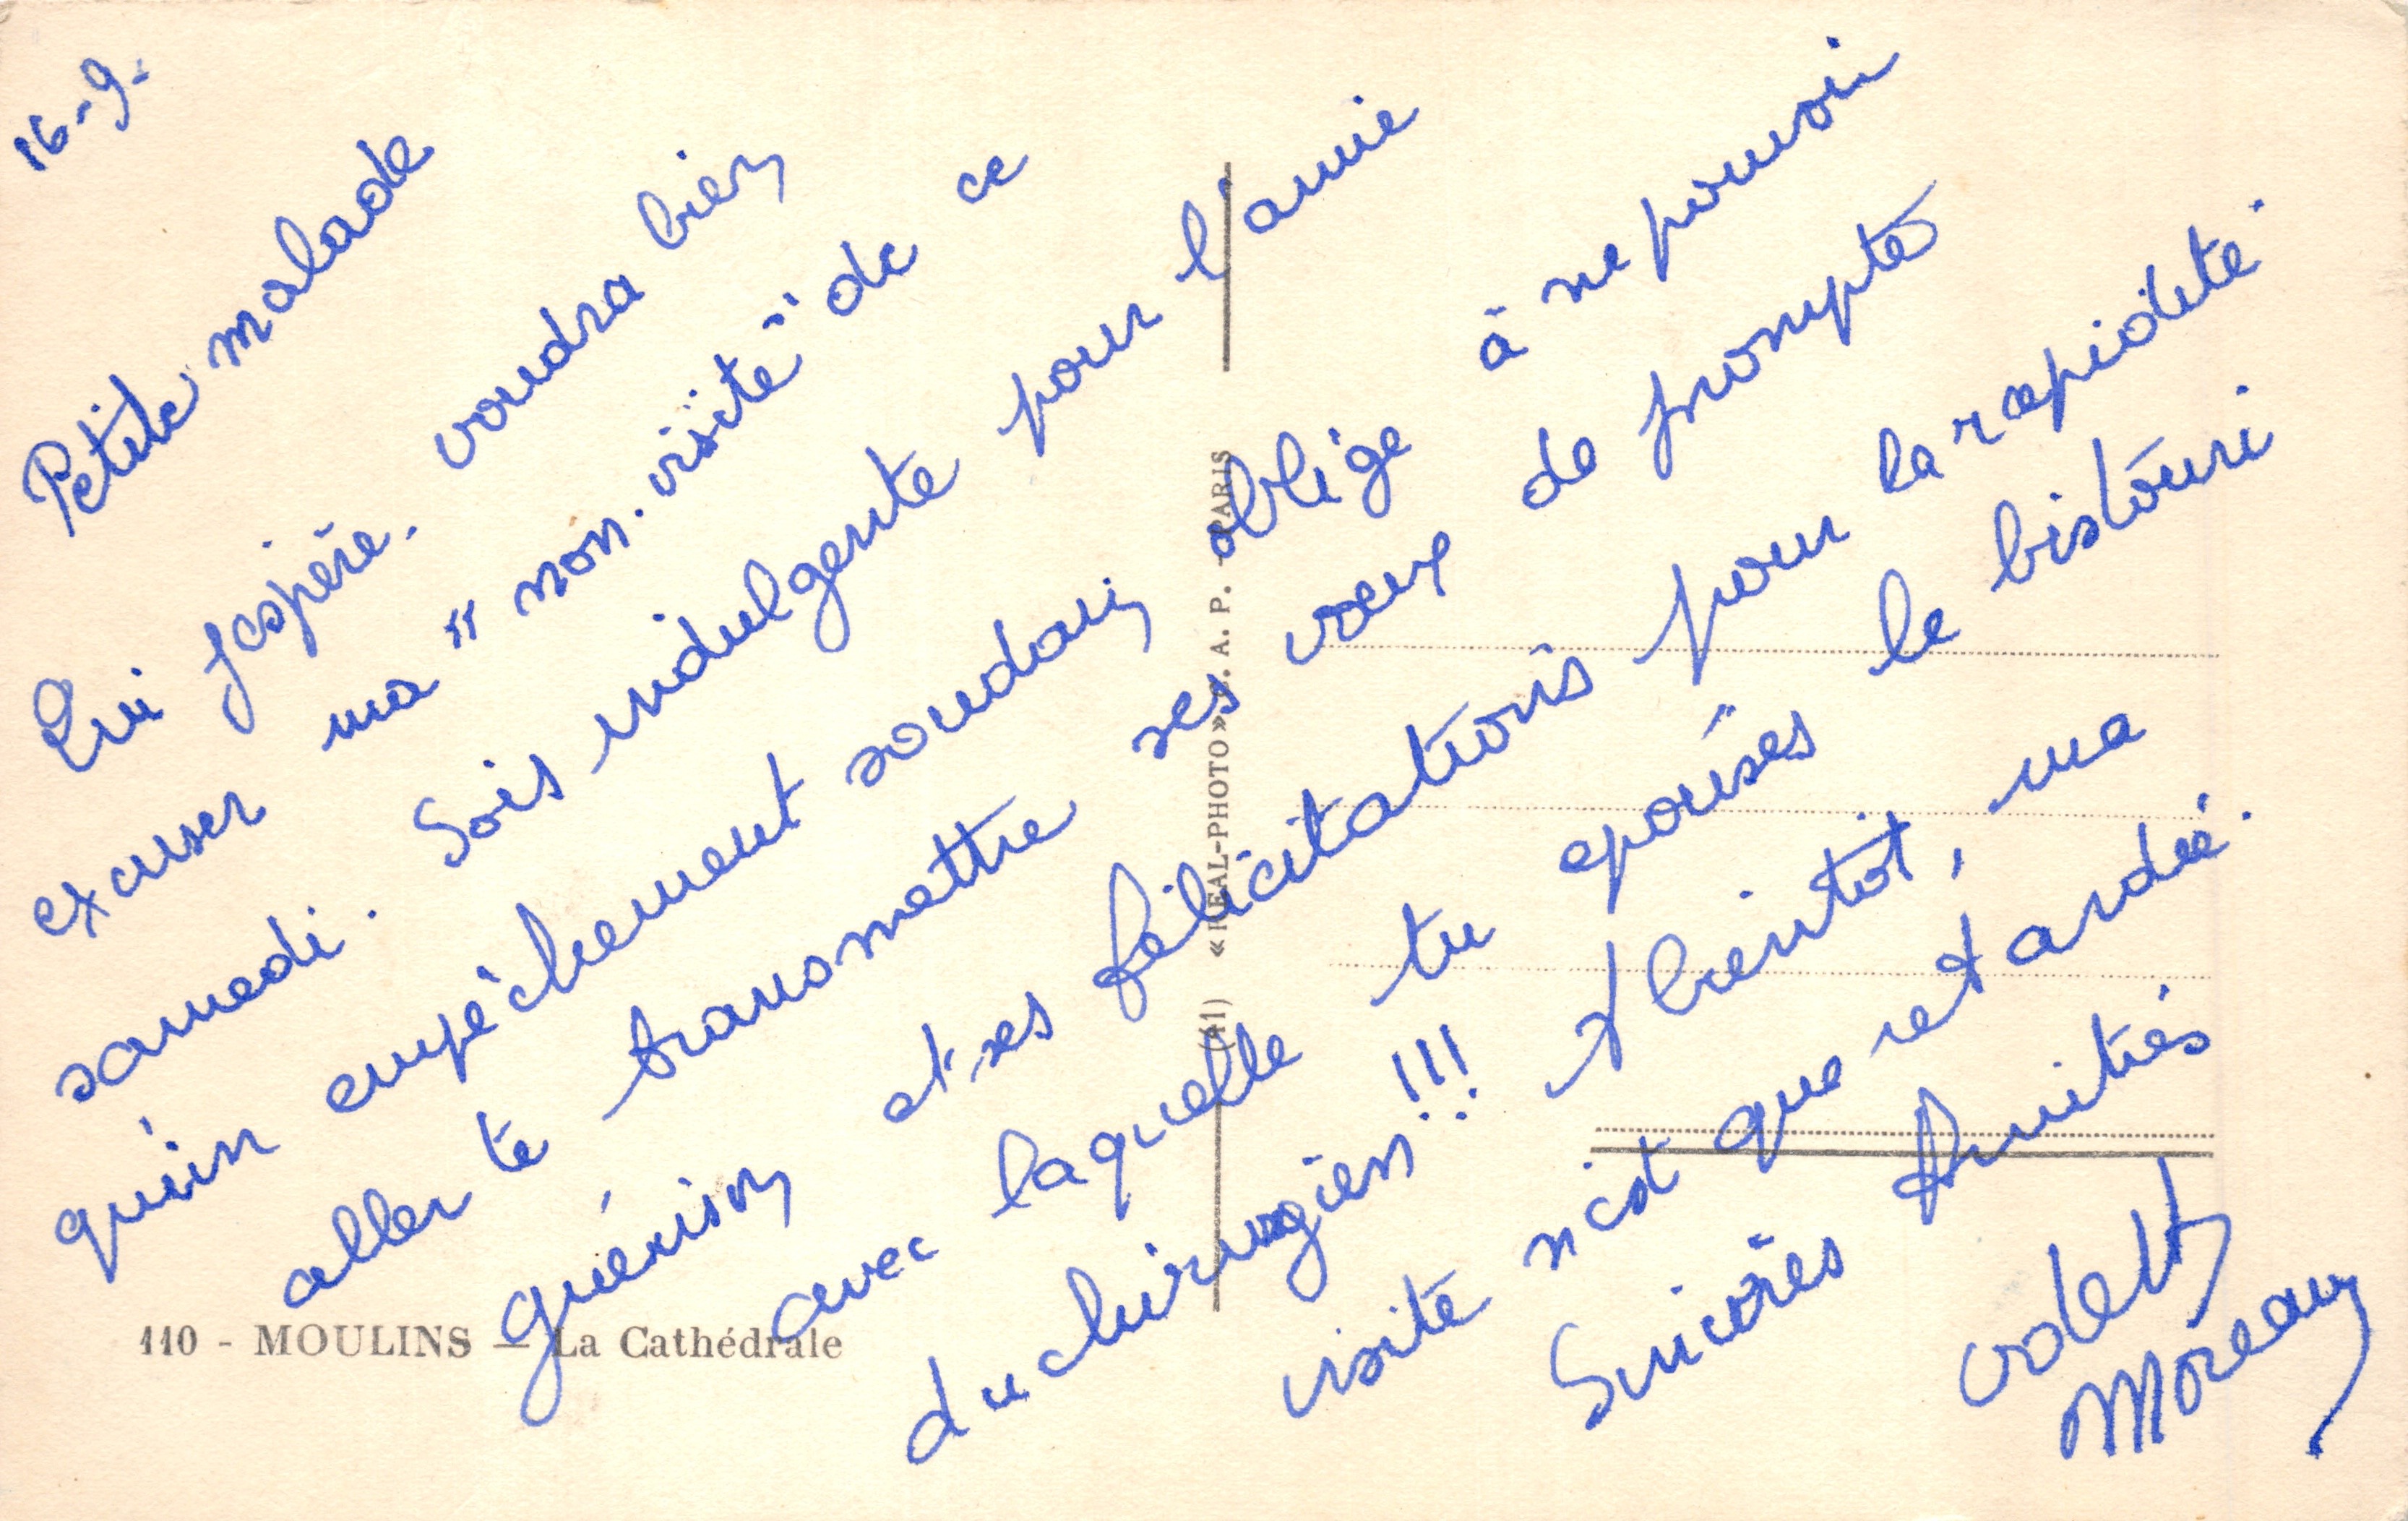 16-9-
Petite malade
Qui j'espère. voudra bien
excuser ma "non-visite" de ce
samedi. Sois indulgente pour l'amie
qu'un empêchement soudain oblige à ne pouvoir
aller te transmettre ses vœux de promptes
guérison et ses félicitations pour la rapidité.
avec laquelle tu épouses le bistouri
du chirurgien!!! A bientôt, ma
visite n'est que retardée.
Sincères Amitiés
Odette
Moreau
110 - MOULINS — La Cathédrale
«REAL-PHOTO» C. A. P. - PARIS